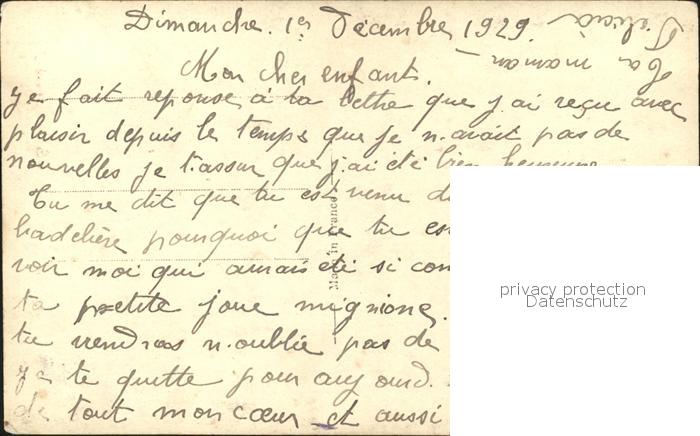 Dimanche. 1er Décembre 1929.
Mon cher enfant.
ye fait reponse à ta lettre que j'ai reçu avec
plaisir depuis le temps que je n.avait pas de
nouvelles je t.assur que j'ai été bien heureuse
Tu me dit que tu est venu
pourquoi que tu
voir moi qui aurais été si con
ta petite joue mignione.
tu viendras n.oublie pas de
ye te quitte pour aujourd.
de tout mon cœur et aussi
Ta maman
Felicia
Made in France
privacy protection
Datenschutz